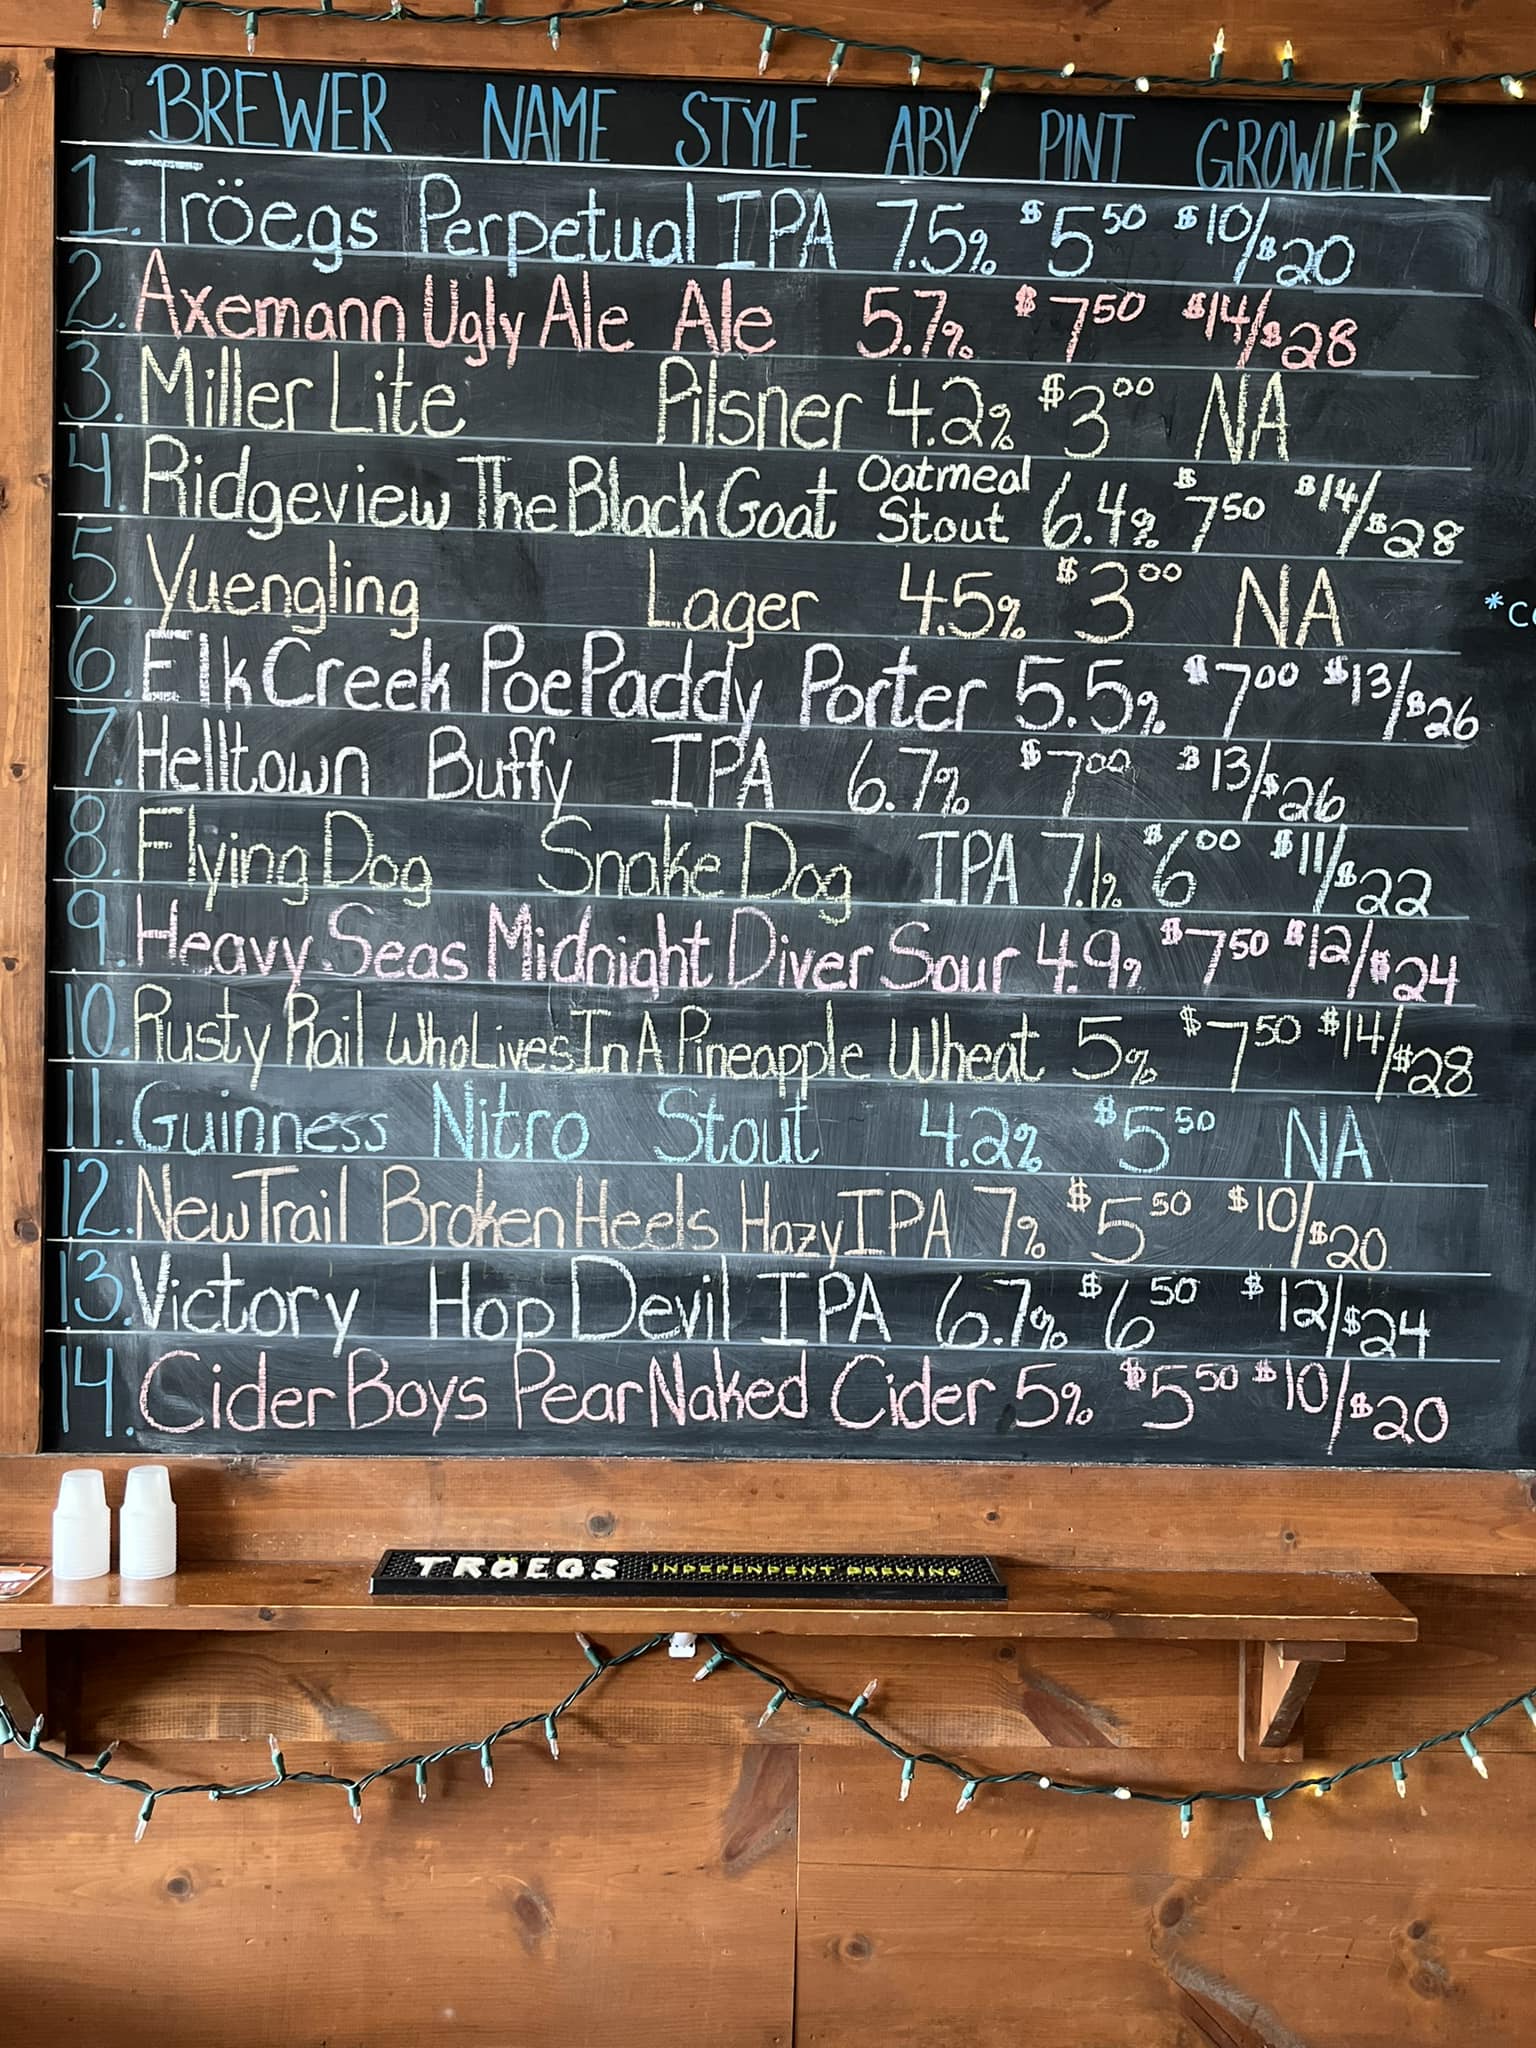 BREWER NAME STYLE ABV PINT GROWLER
1. Tröegs Perpetual IPA 7.5% $5.50 $10/$20
2. Axemann Ugly Ale Ale 5.7% $7.50 $14/$28
3. Miller Lite Pilsner 4.2% $3.00 NA
4. Ridgeview The Black Goat Oatmeal Stout 6.4% $7.50 $14/$28
5. Yuengling Lager 4.5% $3.00 NA
6. Elk Creek Poe Paddy Porter 5.5% $7.00 $13/$26
7. Helltown Buffy IPA 6.7% $7.00 $13/$26
8. Flying Dog Snake Dog IPA 7.1% $6.00 $11/$22
9. Heavy Seas Midnight Diver Sour 4.9% $7.50 $12/$24
10. Rusty Rail Who Lives In A Pineapple Wheat 5% $7.50 $14/$28
11. Guinness Nitro Stout 4.2% $5.50 NA
12. New Trail Broken Heels Hazy IPA 7% $5.50 $10/$20
13. Victory Hop Devil IPA 6.7% $6.50 $12/$24
14. Cider Boys Pear Naked Cider 5% $5.50 $10/$20
TRÖEGS INDEPENDENT BREWING